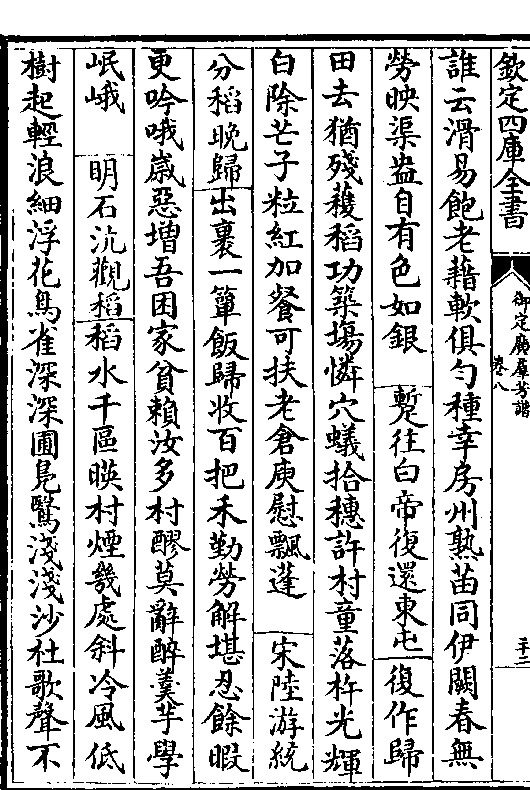 欽定四庫全書
御定廣羣芳譜
卷八
誰云滑易飽老藉軟俱勻種幸房州熟苗同伊闕春無
勞映渠盌自有色如銀 蹔往白帝復還東屯復作歸
田去猶殘穫稻功築場憐穴蟻拾穗許村童落杵光輝
白除芒子粒紅加餐可扶老倉庾慰飄蓬 宋陸游統
分稻晚歸出裹一簞飯歸收百把禾勤勞解堪忍餘暇
更吟哦歲惡增吾困家貧賴汝多村醪莫辭醉羹芋學
岷峨 明石沆觀稻稻水千區暎村煙幾處斜冷風低
樹起輕浪細浮花鳥雀深深圃鳧鷖淺淺沙社歌聲不